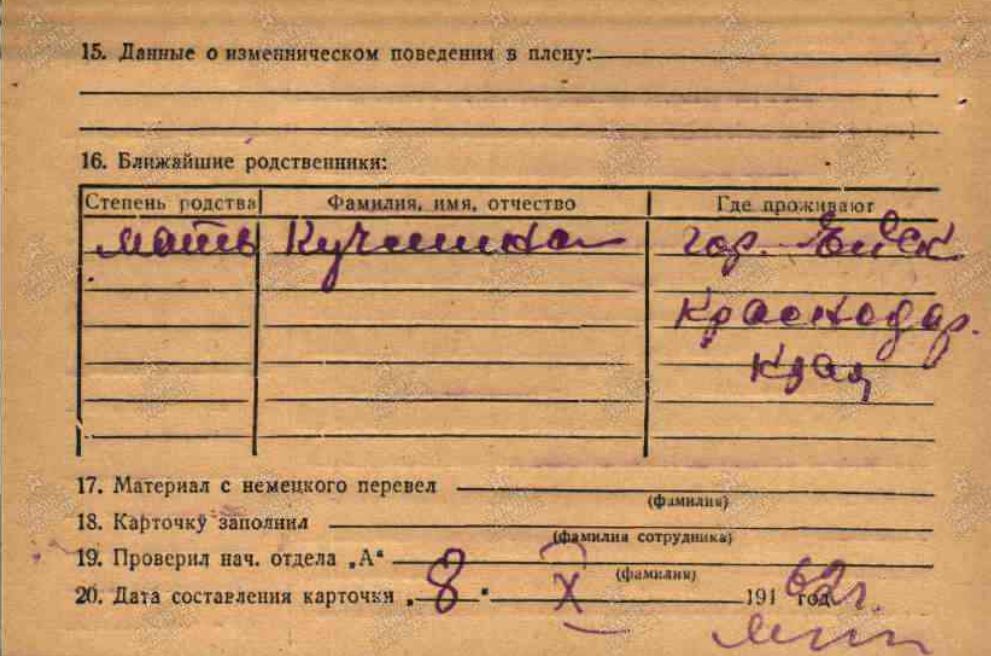 15. Данные о изменническом поведении в плену:
16. Ближайшие родственники:
Степень родства Фамилия, имя, отчество Где проживают
мать гор. Ейск
Краснодар.
края
17. Материал с немецкого перевел
(фамилия)
18. Карточку заполнил
(фамилия сотрудника)
19. Проверил нач. отдела „А“
(фамилия)
20. Дата составления карточки „8“ X 191 год